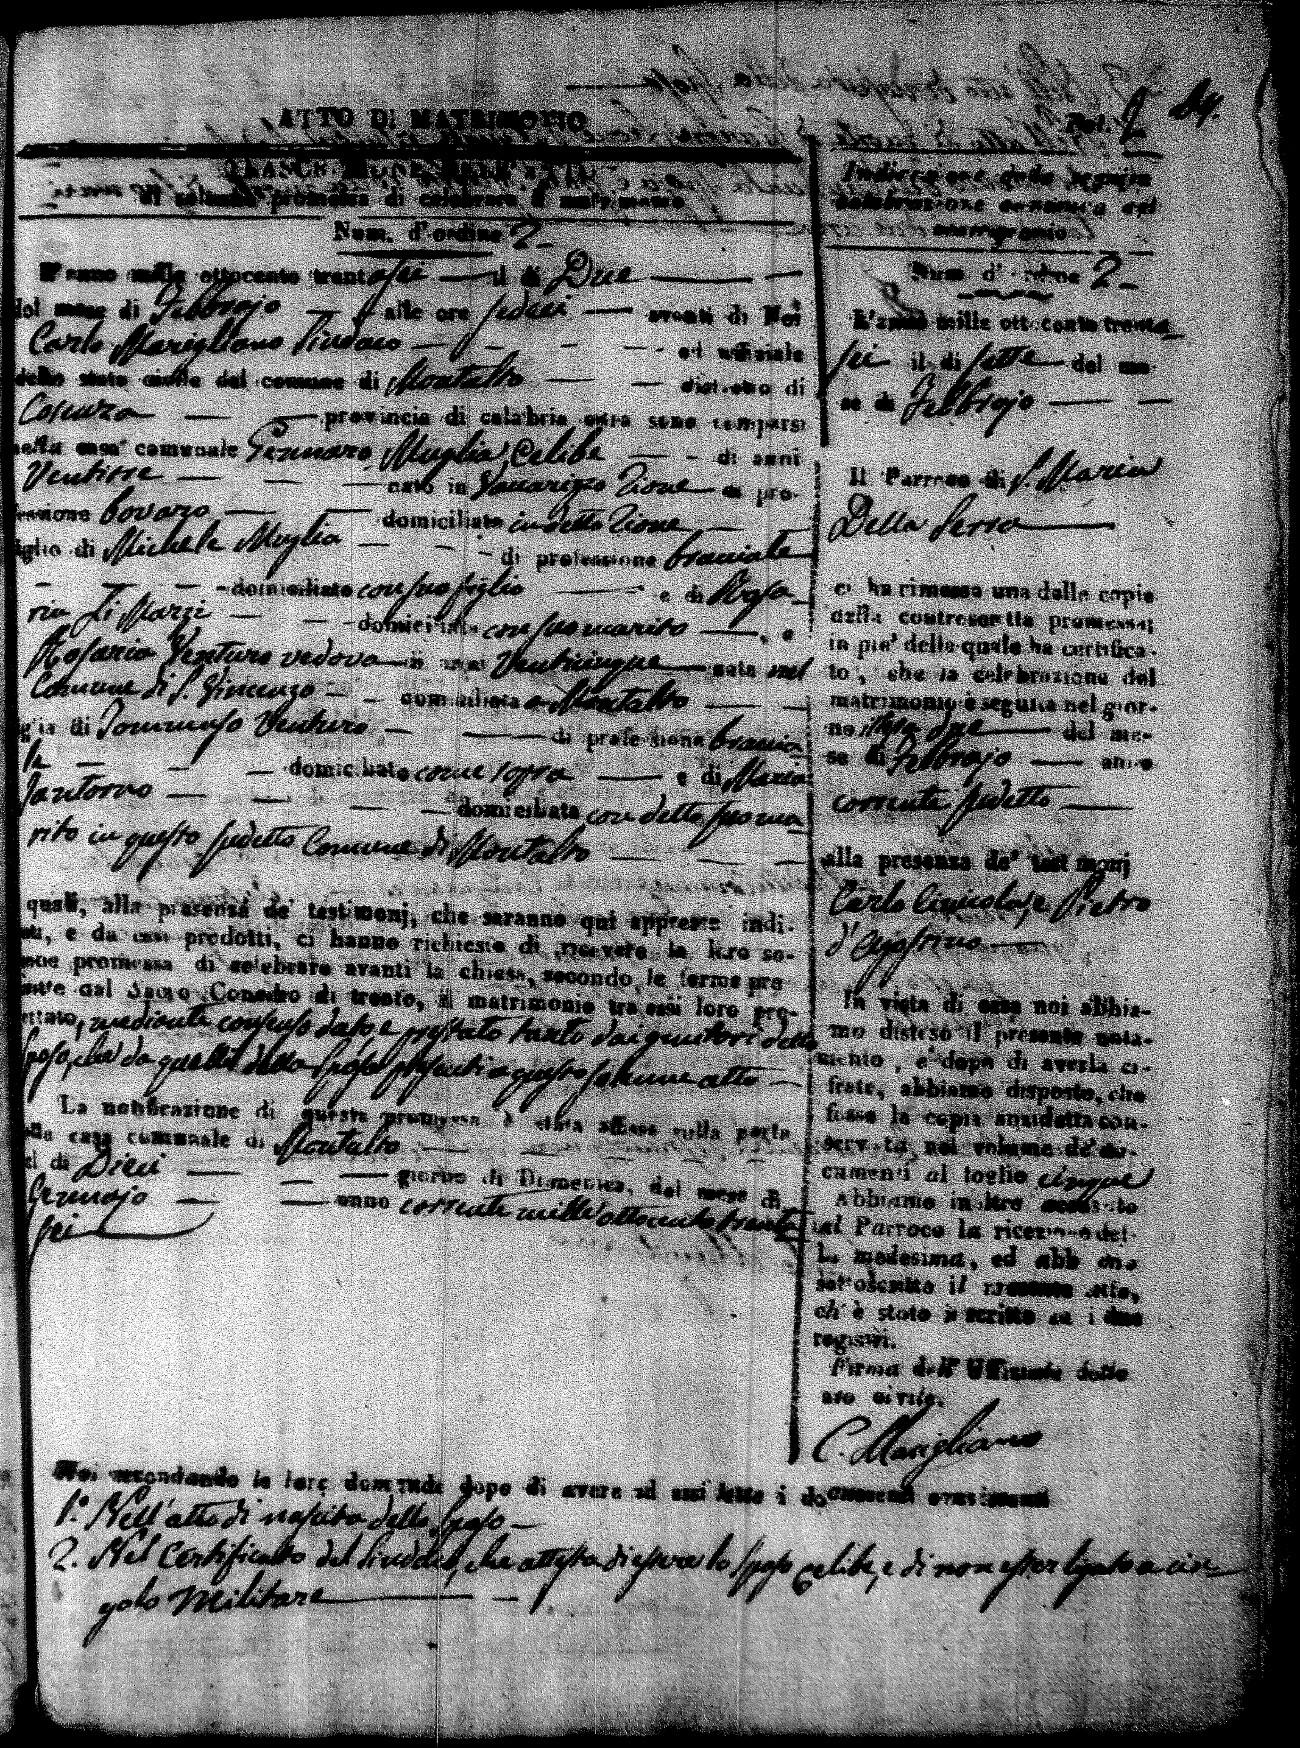 ATTO DI MATRIMONIO
di solenne promessa di celebrare il matrimonio
Num. d'ordine 2.
L'anno mille ottocento trentasei il di Due
del mese di Febbrajo alle ore sedici avanti di Noi
Carlo Marigliano Sindaco ed uffiziale
dello stato civile del comune di Montalto distretto di
Cosenza provincia di calabria citra sono comparsi
nella casa comunale Gennaro Muglia Celibe di anni
Ventitre nato in Vaccarizzo di pro-
fessione bovaro domiciliato in detto
figlio di Michele Muglia di professione bracciale
domiciliato con suo figlio e di
ria Di Marzi domiciliata con suo marito, e
Rosaria Venturo vedova di anni Venticinque nata nel
Comune di S. Vincenzo domiciliata a Montalto
figlia di Tommaso Venturo di professione braccia
le domiciliato come sopra e di Maria
Santorno domiciliata con detto suo ma
rito in questo sudetto Comune di Montalto
quali, alla presenza de' testimonj, che saranno qui appresso indi-
cati, e da essi prodotti, ci hanno richiesto di ricevere la loro so-
lenne promessa di celebrare avanti la chiesa, secondo le forme pre
scritte dal Sacro Concilio di trento, il matrimonio tra essi loro pro-
gettato, mediante consenso dato e prestato tanto dai genitori dello
sposo, che da quelli della sposa presenti a questo solenne atto
La notificazione di questa promessa è stata affissa sulla porta
della casa comunale di Montalto
il di Dieci giorno di Domenica, del mese di
Gennajo anno corrente mille ottocento trenta
sei
Noi secondando la loro domanda dopo di avere ad essi letto i documenti consistenti
1.° Nell'atto di nascita dello sposo
2. Nel Certificato del Sindaco, che attesta di essere lo sposo celibe, e di non esser ligato a cin-
golo militare
Fol.
Indicazione della seguita
celebrazione canonica del
matrimonio
Num d'ordine 2.
L'anno mille ottocento trenta
sei il di sette del me-
se di Febbrajo
Il Parroco di S. Maria
Della Serra
ci ha rimessa una delle copie
della controscritta promessa;
in piè della quale ha certifica-
to, che la celebrazione del
matrimonio è seguita nel gior-
no due del me-
se di Febbrajo anno
corrente sudetto
alla presenza de' testimonj
Carlo e Pietro
d'Agostino
In vista di essa noi abbia-
mo disteso il presente nota-
mento, e dopo di averla ci-
frate, abbiamo disposto, che
fusse la copia anzidetta con-
servata, nel volume de' do-
cumenti al foglio cinque
Abbiamo inoltre accusato
al Parroco la ricezione del-
la medesima, ed abbiamo
sottoscritto il presente atto,
ch'è stato iscritto su i due
registri.
Firma dell'Uffiziale dello
stato civile.
C. Marigliano